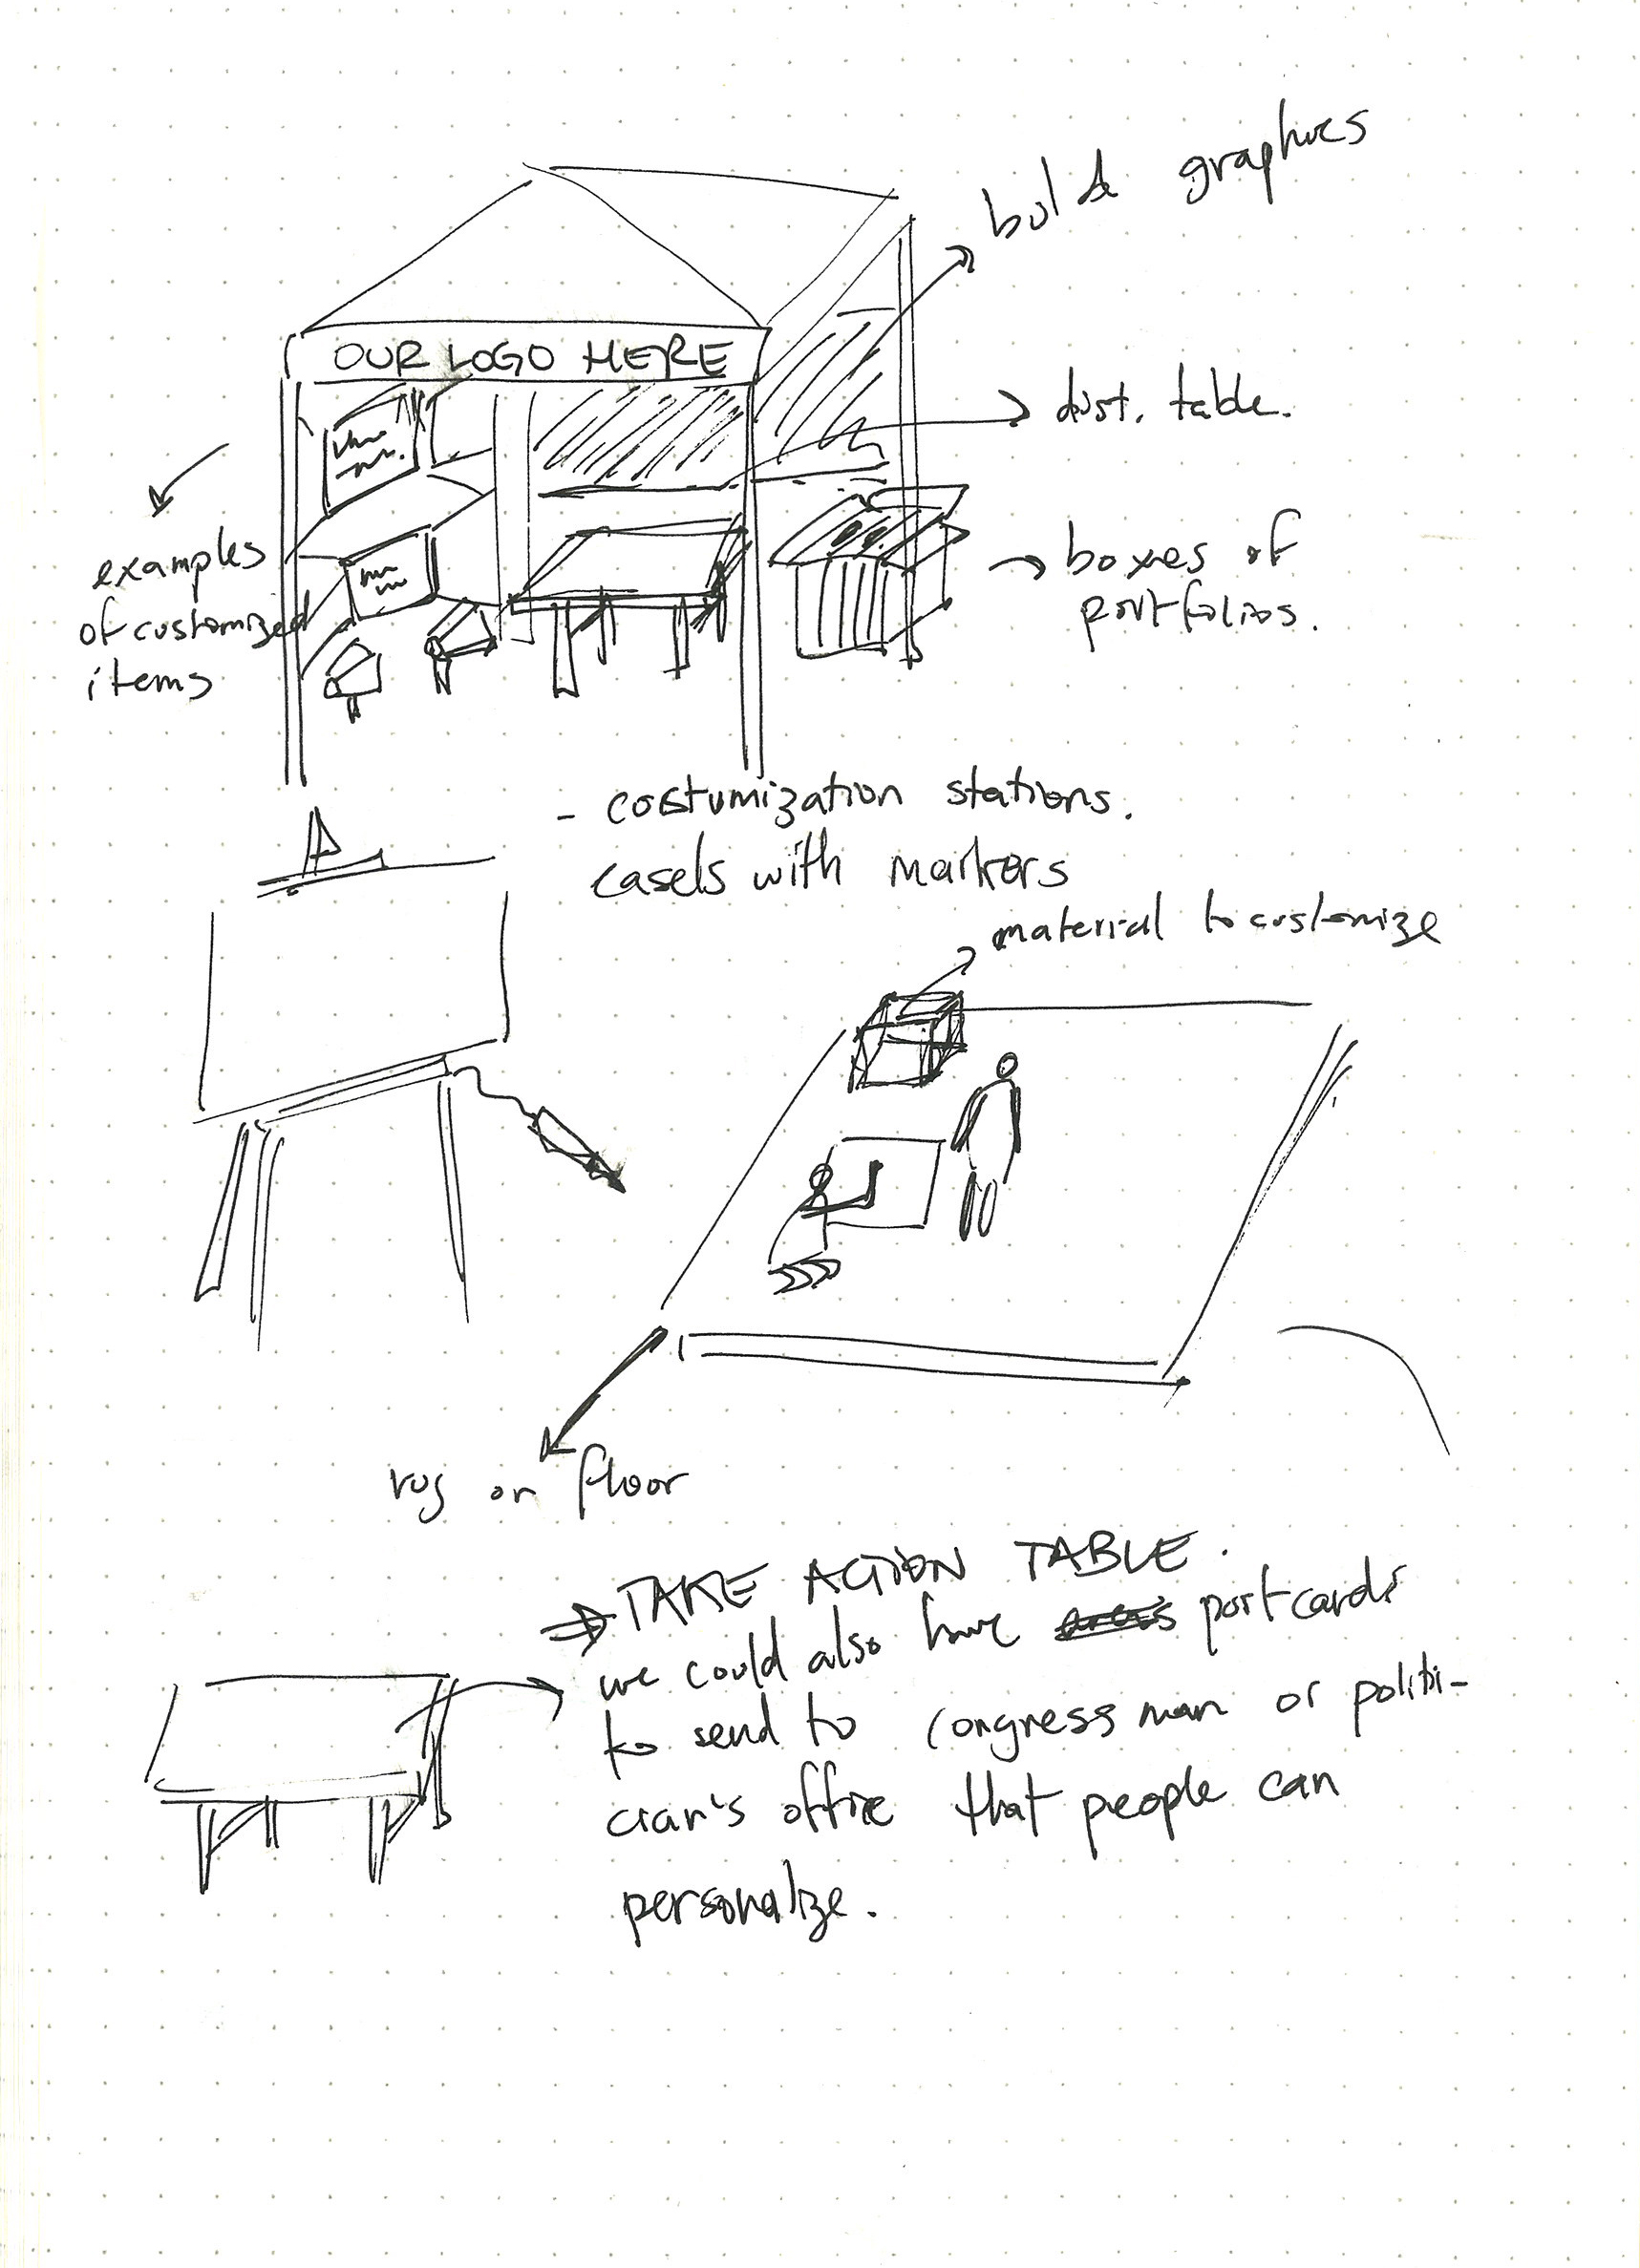 bold graphics
OUR LOGO HERE
dist. table.
examples
of customized
items
boxes of
portfolios.
- costumization stations.
easels with markers
material to customize
rug on floor
⇒ TAKE ACTION TABLE.
we could also have postcards
to send to congress man or politi-
cian's office that people can
personalize.